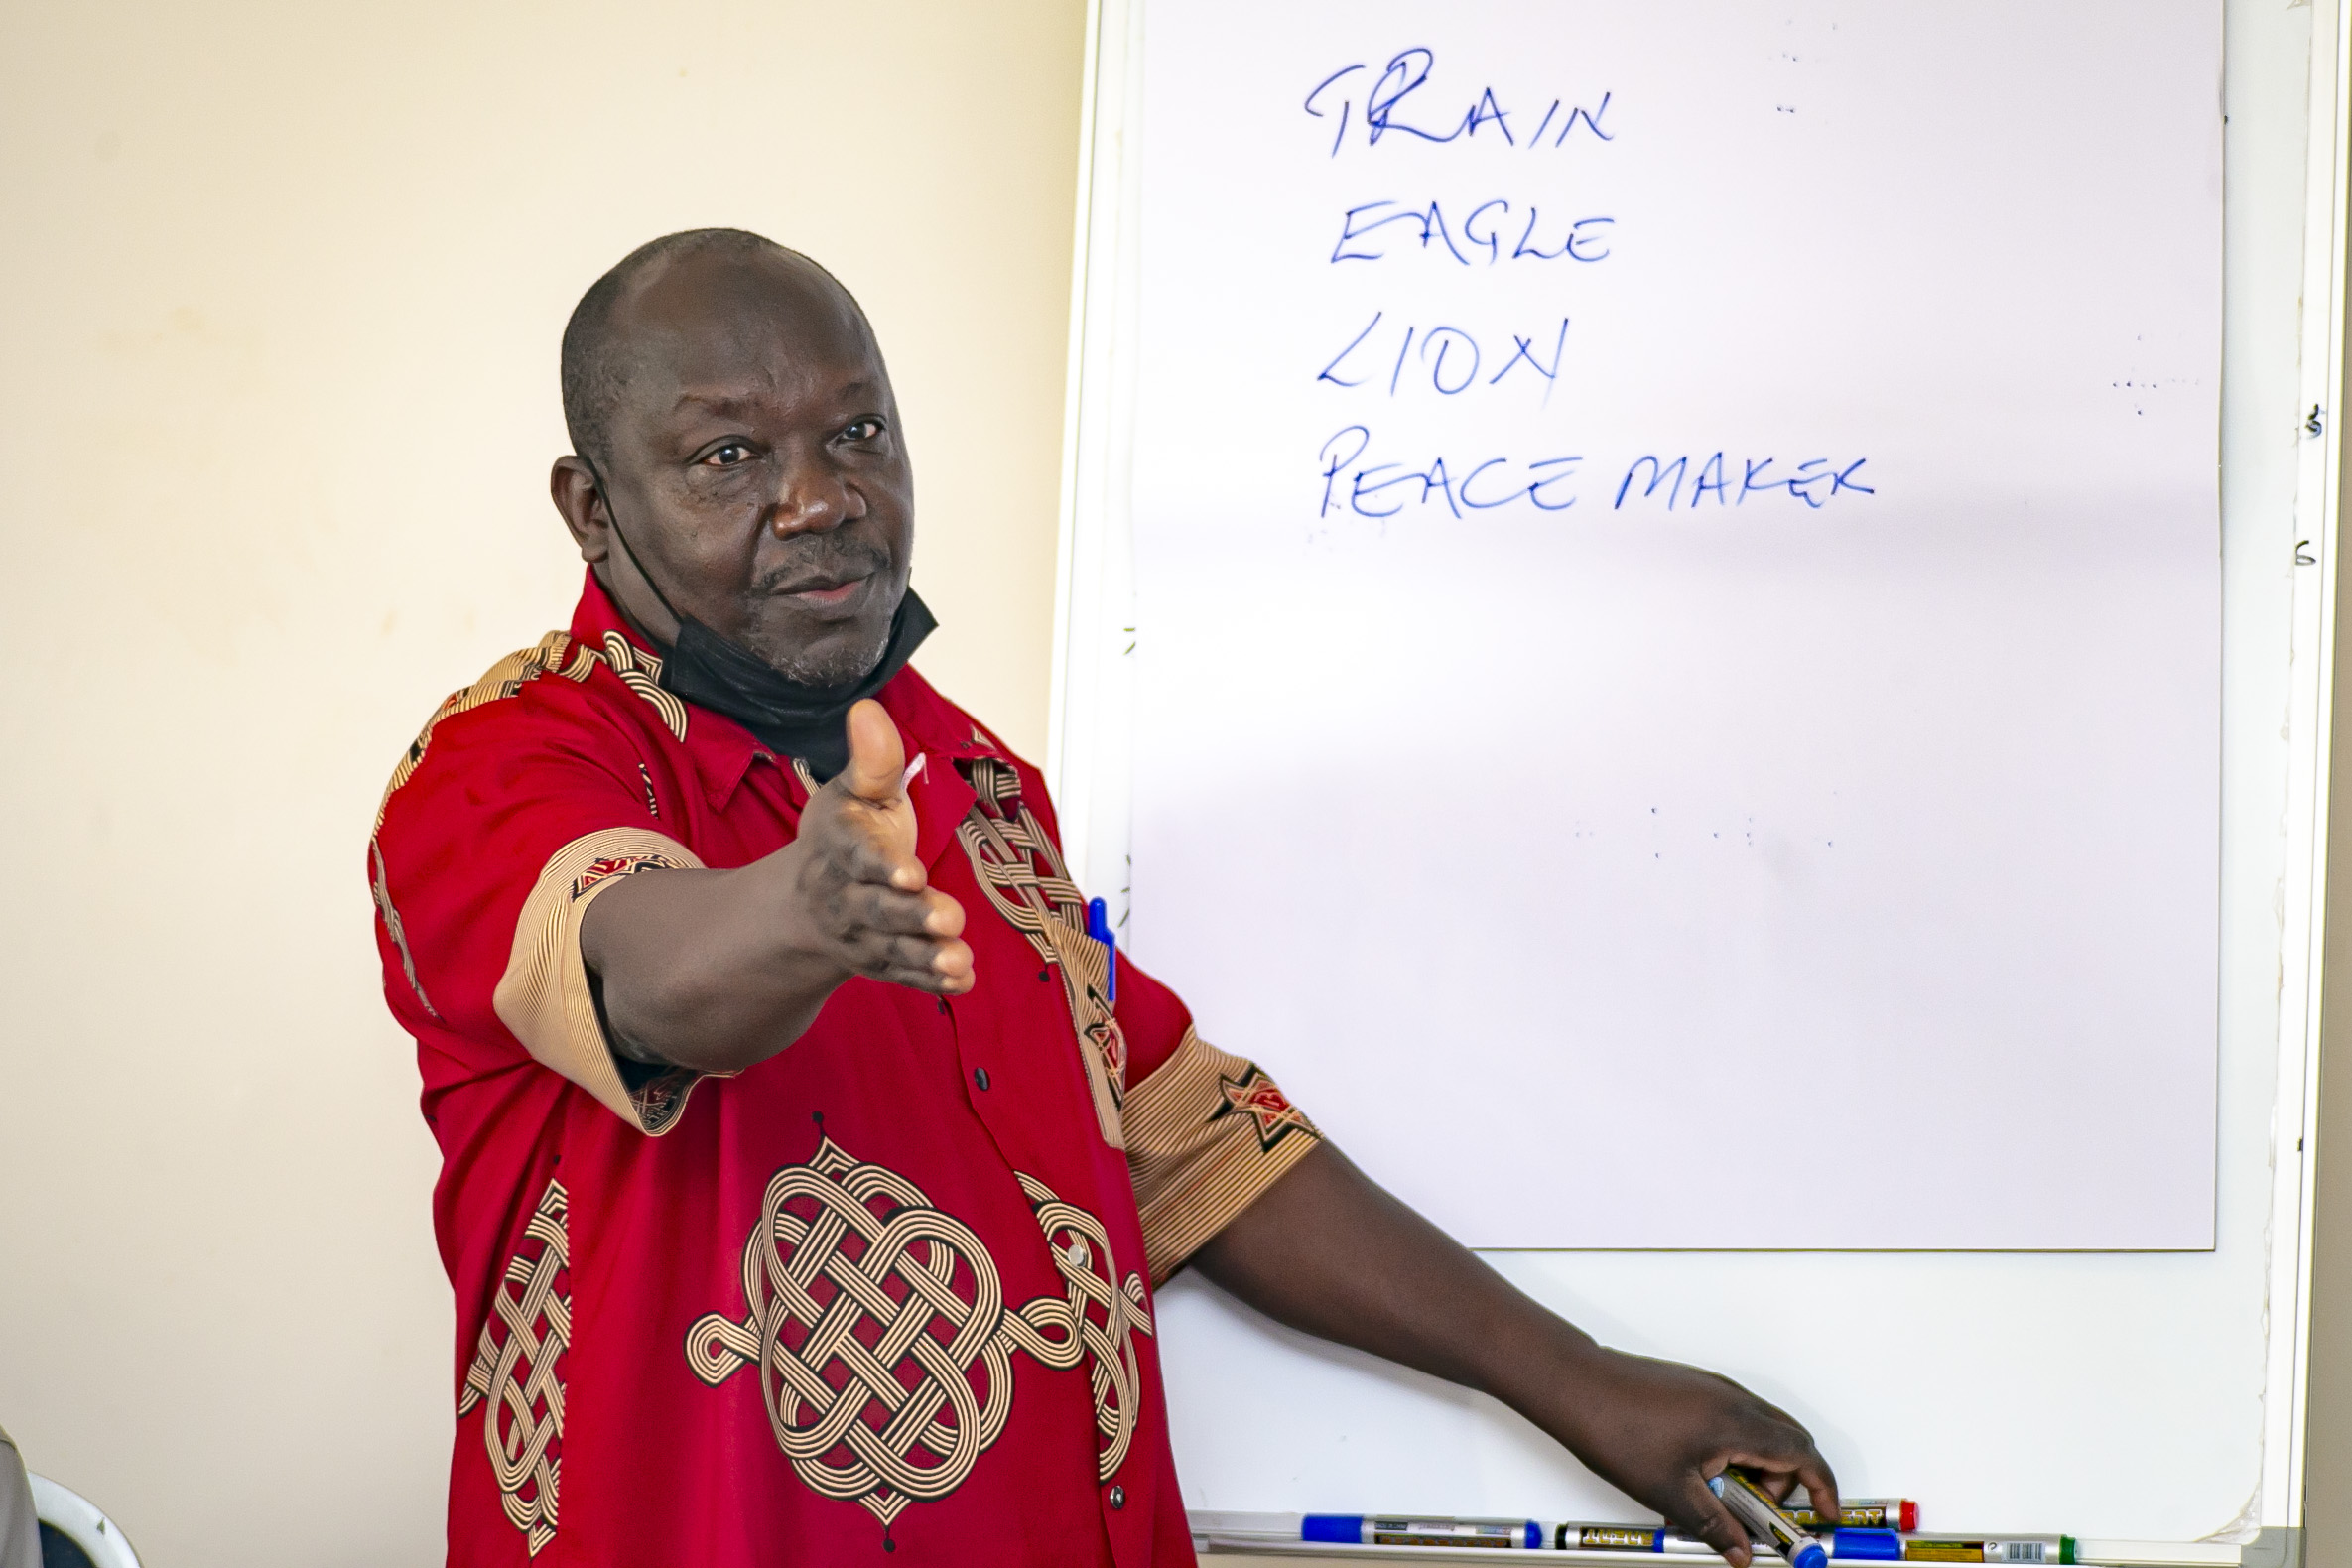 TRAIN
EAGLE
LION
PEACE MAKER
5
6